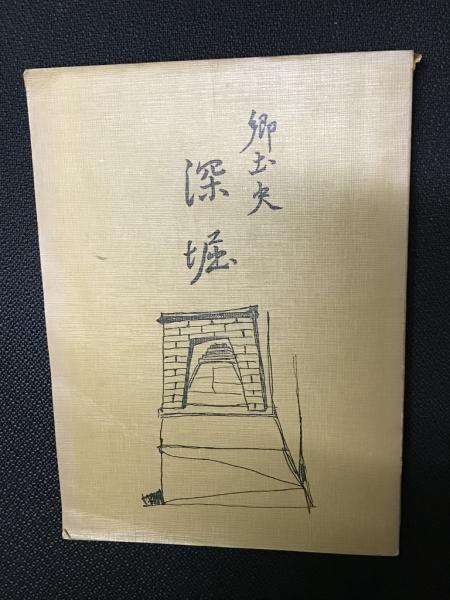 郷土史
深堀